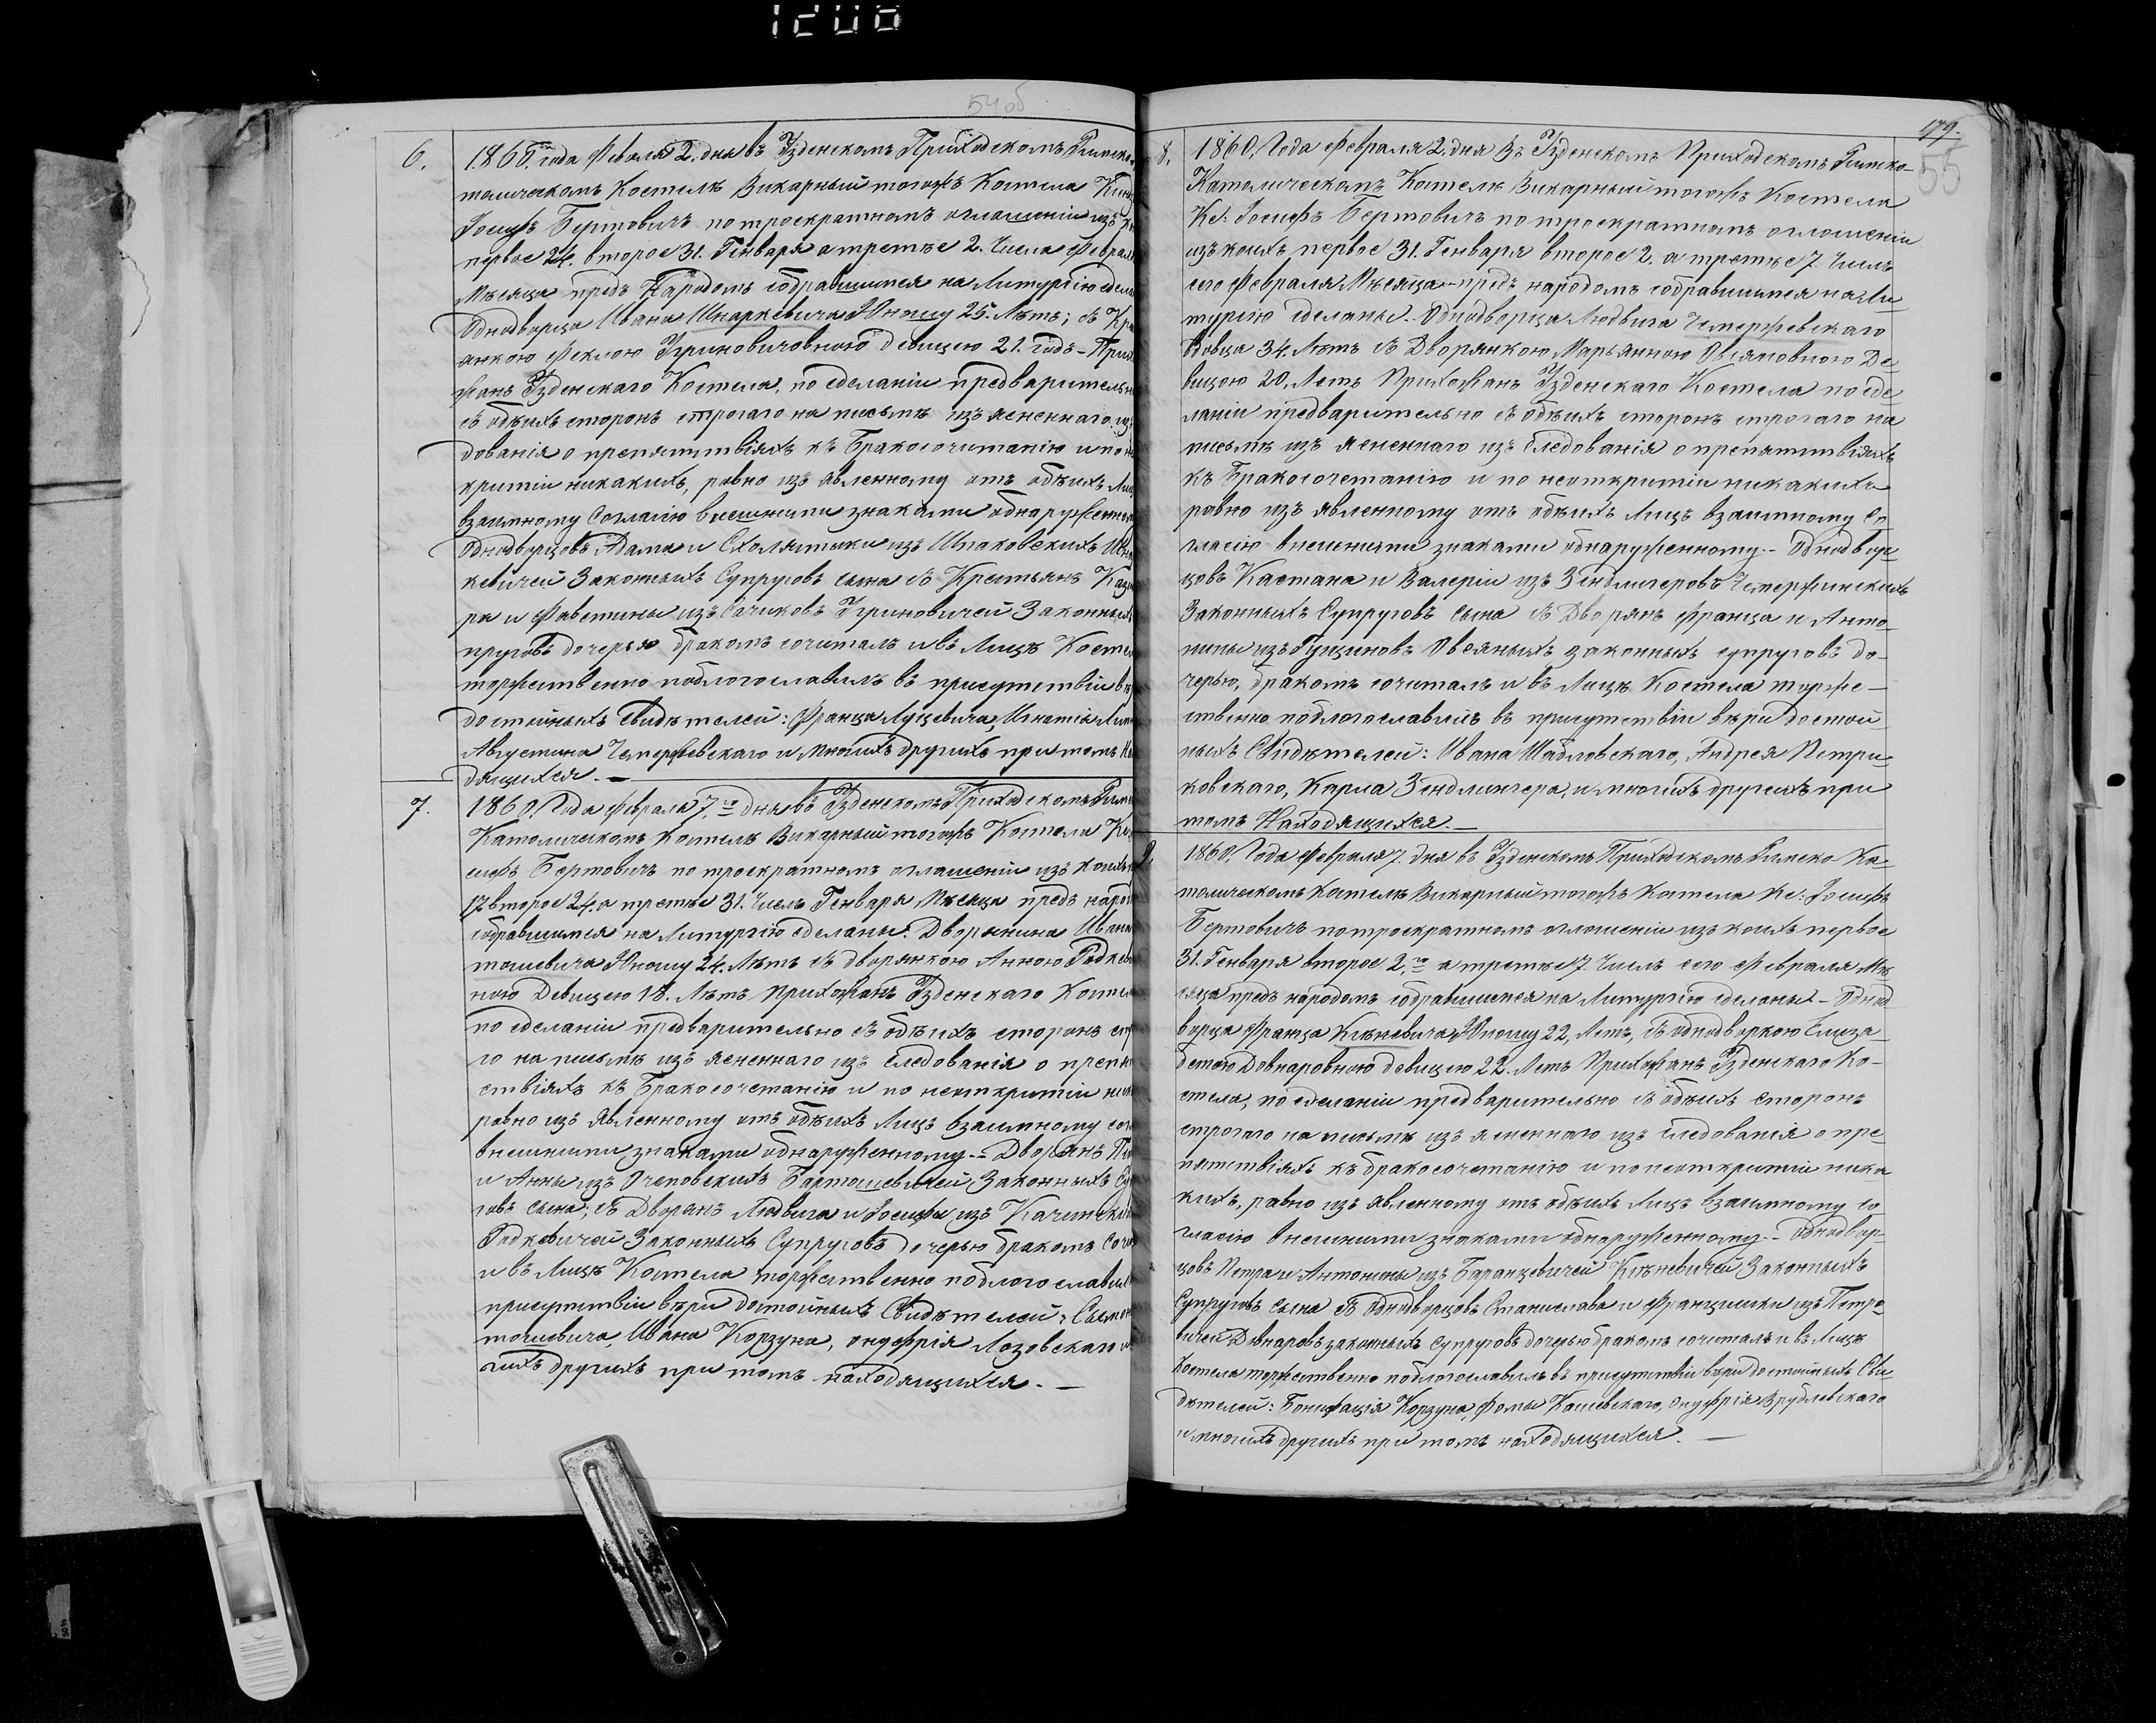 1200
54 об
6.
1860. года Февраля 2. дня въ Узденскомъ Приходскомъ Римско
толическомъ Костелѣ Викарный тогожъ Костела
Іосифъ Бертовичъ по троекратномъ оглашеніи изъ
первое 24. второе 31. Генваря а третье 2. Числа Феврал
Мѣсяца предъ Народомъ собравшимся на Литургію сдела
Однодворца Ивана Шнаркевича Юношу 25. Лѣтъ; съ Кре
янкою Феклою Угриновичовною Девицею 21. годъ - Прих
жанъ Узденскаго Костела, по сделаніи предварительн
съ обѣихъ сторонъ строгаго на письмѣ изъясненнаго из
дованія о препятствіяхъ къ Бракосочитанію и по н
критіи никакихъ, равно изъ явленному отъ обѣихъ Ли
взаимному Согласію внешними знаками обнаруженном
Однодворцовъ Адама и Схолястыки изъ Шпаковскихъ
кевичей Законныхъ Супруговъ сына съ Крестьянъ Кази
ра и Фавстины изъ Сачиковъ Угриновичей Законныхъ
пруговъ дочерью бракомъ сочиталъ и въ Лицѣ Косте
торжественно поблогославилъ въ присутствіи вѣ
достойныхъ Свидѣтелей: Франца Луцевича, Игнатія
Августина Чемержевскаго и многихъ другихъ при томъ На
дящихся. —
7.
1860. Года Февраля 7.го дня въ Узденскомъ Приходскомъ Рим
Католическомъ Костелѣ Викарный тогожъ Костела К
сифъ Бертовичъ по троекратномъ оглашеніи изъ коихъ
17. второе 24. а третье 31. Числъ Генваря Мѣсяца предъ наро
собравшимся на Литургію сделаны. Дворянина Ивана
тошевича Юношу 24. Лѣтъ съ дворянкою Анною Радкев
ною Девицею 18. Лѣтъ Прихожанъ Узденскаго Косте
по сделаніи предварительно съ обѣихъ сторонъ стр
го на письмѣ изъ ясненнаго изъ Следованія о препя
ствіяхъ къ Бракосочетанію и по неоткритіи ник
равно изъ явленному отъ обѣихъ Лицъ взаимному сог
внешними знаками обнаруженному. - Дворянъ
и Анны изъ Очеповскихъ Бартошевичей Законныхъ Су
говъ сына, съ Дворянъ Людвига и Іосифы изъ Качинских
Радкевичей Законныхъ Супруговъ дочерью бракомъ Сочи
и въ Лицѣ Костела торжественно поблогославил
присутствіи вѣри достойныхъ Свидѣтелей:
тошевича, Ивана Корзуна, Онуфрія Лозовскаго и
гихъ другихъ при томъ находящихся. —
179.
55
8.
1860. Года Февраля 2. дня въ Узденскомъ Приходскомъ Римско-
Католическомъ Костелѣ Викарный тогожъ Костела
Кс: Іосифъ Бертовичъ по троекратномъ оглошеніи
изъ коихъ первое 31. Генваря второе 2. а третье 7. Числъ
сего Февраля Мѣсяца - предъ народомъ собравшимся на Ли
тургію сделаны. - Однодворца Людвига Чемержевскаго
Вдовца 34. Лѣтъ съ Дворянкою Марьянною Овсяновною Де
вицою 20, Летъ Прихожанъ Узденскаго Костела по сде
ланіи предварительно съ обѣихъ сторонъ строгаго на
письмѣ изъ ясненнаго изъ Следованія о препятствіяхъ
къ Бракосочетанію и по неоткритіи никакихъ
равно изъ явленному отъ обѣихъ Лицъ взаимному Со
гласію внешними знаками обнаруженному. - Однодвор
цовъ Каэтана и Валеріи изъ Зендлигеровъ Чемержинскихъ
Законныхъ Супруговъ сына съ Дворянъ Франца и Анто-
нины изъ Гущиновъ Овсяныхъ законныхъ супруговъ до-
черью, бракомъ сочиталъ и въ Лицѣ Костела торже-
ственно поблогославилъ въ присутствіи вѣри достой
ныхъ Свидѣтелей: Ивана Шабловскаго, Андрея Петри
ковскаго, Карла Зендлингера, и многихъ другихъ при
томъ Находящихся. —
9.
1860. Года Февраля 7. дня въ Узденскомъ Приходскомъ Римско Ка-
толическомъ Костелѣ Викарный тогожъ Костела Кс: Іосифъ
Бертовичъ по троекратномъ оглошеніи изъ коихъ первое
31. Генваря второе 2.го а третье 7. Числъ сего Февраля Мѣ
сяца предъ народомъ собравшимся на Литургію сделаны - Однод
ворца Франца Кгѣневича Юношу 22, Летъ, съ однодворкою Елиза
бетою Довнаровною девицею 22. Летъ Прихожанъ Узденскаго Ко-
стела, по сделаніи предварительно съ обѣихъ сторонъ
строгаго на письмѣ изъ ясненнаго изъ следованія о пре
пятствіяхъ къ бракосочетанію и по неоткритіи ника
кихъ, равно изъ явленному отъ обѣихъ Лицъ взаимному со
гласію внешними знаками обнаруженному. - Однодвор
цовъ Петра и Антонины изъ Баранцевичей Кгѣневичей Законныхъ
Супруговъ сына съ Однодворцовъ Станислава и Францишки изъ Петро
вичей Довнаровъ законныхъ супруговъ дочерью бракомъ сочиталъ и въ Лицѣ
Костела торжественно поблогославилъ въ присутствіи вѣри достойныхъ Сви
детелей: Бонифація Корзуна, Фомы Кашевскаго, Онуфрія Врублевскаго
и многихъ другихъ при томъ находящихся. —